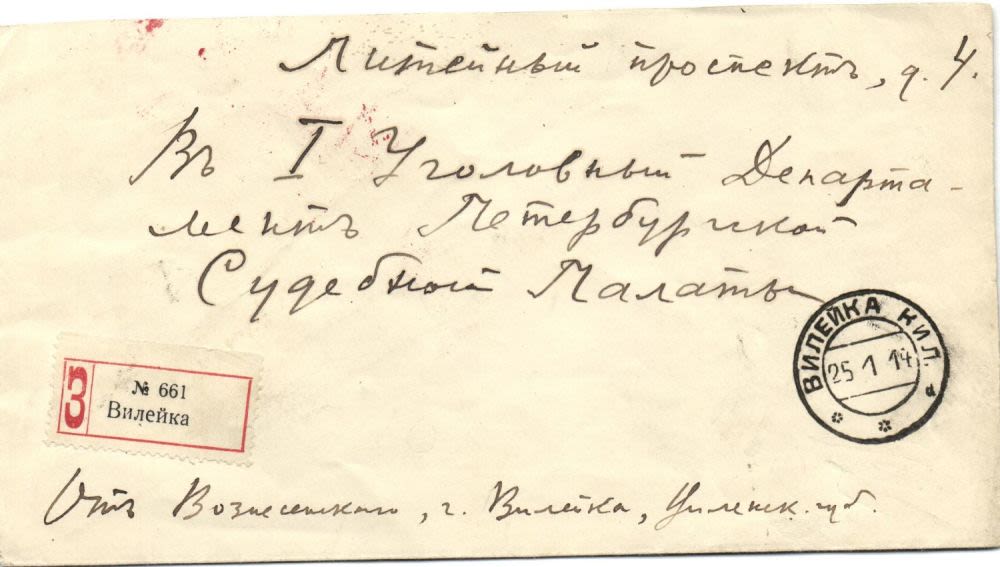 Литейный проспектъ, д. 4.
Въ I Уголовный Департа-
ментъ Петербургской
Судебной Палаты
ВИЛЕЙКА ВИЛ.
25 1 14
З
№ 661
Вилейка
Отъ Вознесенскаго, г. Вилейка, Виленск. губ.